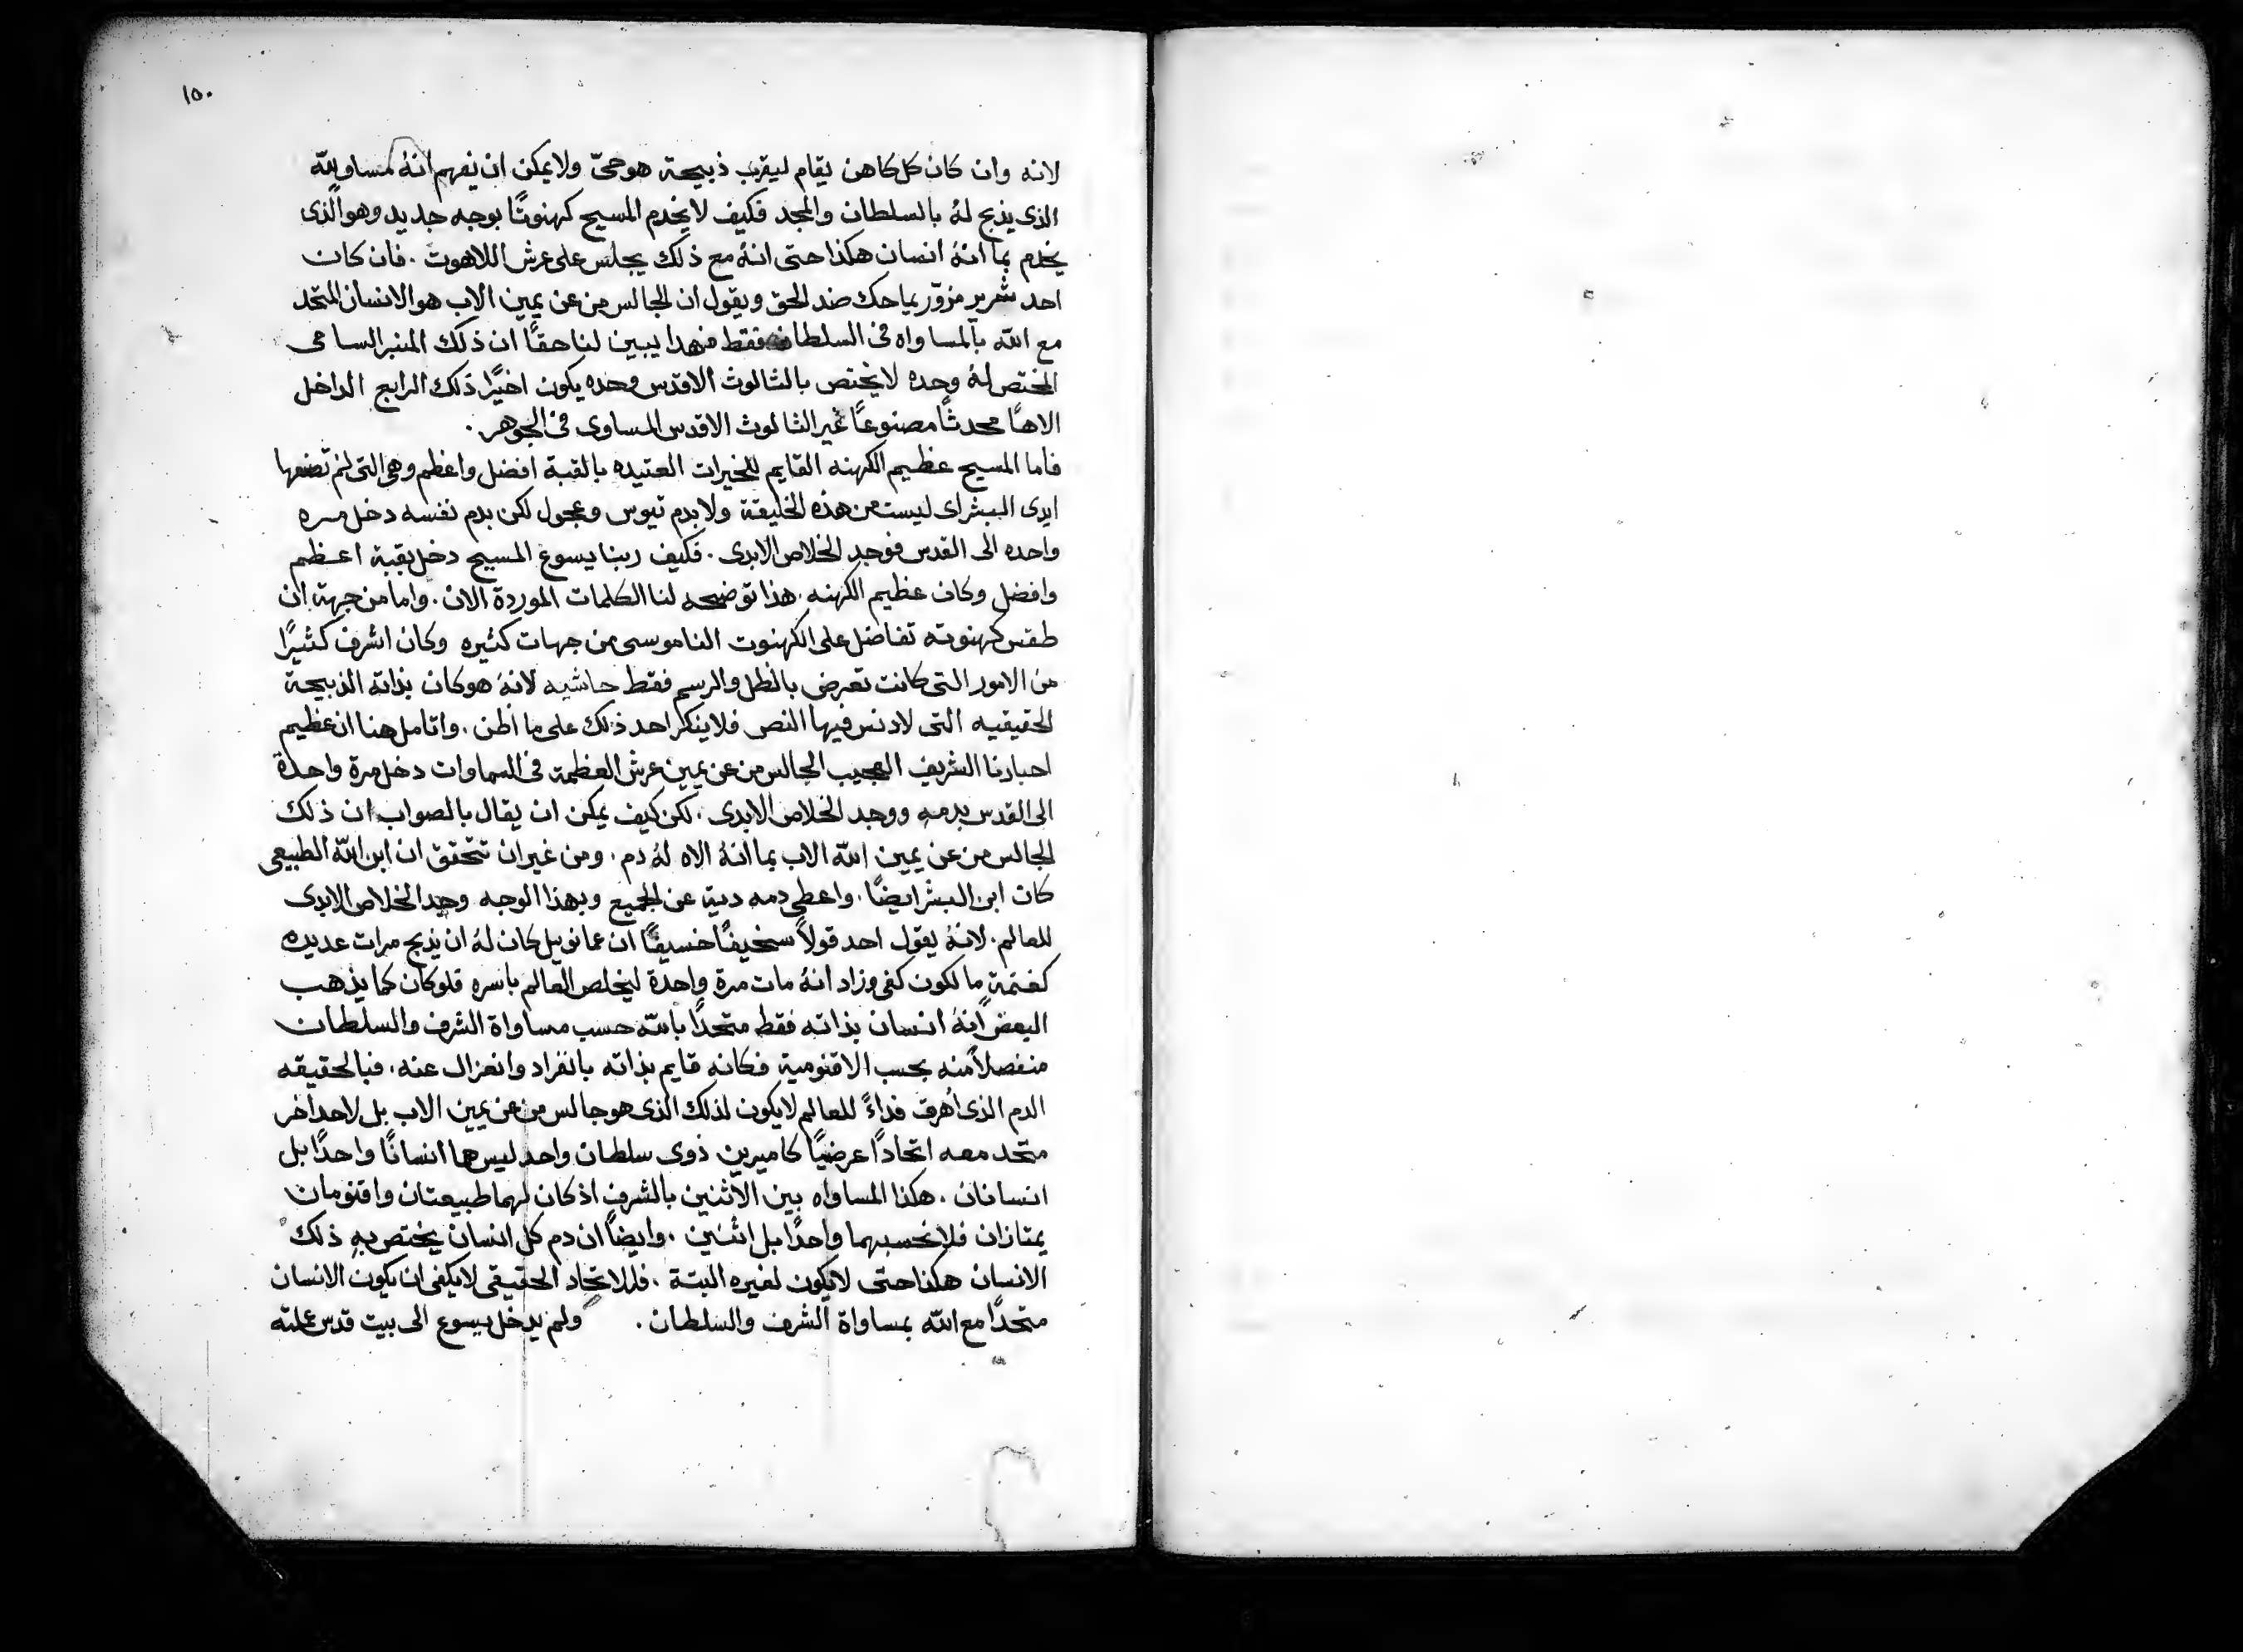 ١٥٠
لانه وان كان كل كاهن يقام ليقرب ذبيحة هو حىّ ولا يمكن ان نفهم انهُ مساو لله
الذى يذبح لهُ بالسلطان والمجد فكيف لا يخدم المسيح كهنوتًا بوجه جديد وهو الذى
يخدم بما انهُ انسان هكذا حتى انهُ مع ذلك يجلس على عرش اللاهوت . فان كان
احد شرير مزوّر يماحك ضد الحق ويقول ان الجالس من عن يمين الاب هو الانسان المتحد
مع الله بالمساواه فى السلطان فقط فهدا يبين لنا حقًا ان ذلك المنبر السامى
المختص لهُ وحده لا يختص بالثالوث الاقدس وحده يكون اخيرًا ذلك الرابع الداخل
الاهًا محدثًا مصنوعًا غير الثالوث الاقدس المساوى فى الجوهر .
فاما المسيح عظيم الكهنه القايم للخيرات العتيده بالقبة افضل واعظم وهى التى لم تصنعها
ايدى البشر اى ليست من هذه الخليقة ولا بدم تيوس وعجول لكن بدم نفسه دخل مره
واحده الى القدس فوجد الخلاص الابدى . فكيف ربنا يسوع المسيح دخل بقبة اعظم
وافضل وكان عظيم الكهنه . هذا توضحه لنا الكلمات الموردة الان . واما من جهة ان
طقس كهنوته تفاضل على الكهنوت الناموسى من جهات كثيره وكان اشرف كثيرًا
من الامور التى كانت تعرض بالظل والرسم فقط حاشيه لانهُ هو كان بذاته الذبيحة
الحقيقيه التى لا دنس فيها النص فلا ينكر احد ذلك على ما اظن . واتامل هنا ان عظيم
احبارنا الشريف العجيب الجالس من عن يمين عرش العظمة فى السماوات دخل مرة واحدة
الى القدس بدمهِ ووجد الخلاص الابدى . لكن كيف يمكن ان يقال بالصواب ان ذلك
الجالس من عن يمين الله الاب بما انهُ الاه لهُ دم . ومن غير ان تتحقق ان ابن الله الطبيعى
كان ابن البشر ايضًا . واعطى دمه دية عن الجميع وبهذا الوجه وجد الخلاص الابدى
للعالم . لانهُ يقول احد قولاً سخيفًا خسيفًا ان عمانوييل كان لهُ ان يذبح مرات عديده
كغنمةٍ ما لكون كفى وزاد انهُ مات مرة واحدة ليخلص العالم باسره فلو كان كما يذهب
البعض انهُ انسان بذاته فقط متحدًا بالله حسب مساواة الشرف والسلطان
منفصلاً منه بحسب الاقنومية فكانه قايم بذاته بانفراد وانعزال عنه . فبالحقيقه
الدم الذى اُهرق فداءً للعالم لا يكون لذلك الذى هو جالس من عن يمين الاب بل لاحد اخر
متحد معه اتحادًا عرضيًا كاميرين ذوى سلطان واحد ليس هما انسانًا واحدًا بل
انسانان . هكذا المساواه بين الاثنين بالشرف اذ كان لهما طبيعتان واقنومان
يمتازان فلا نحسبهما واحدًا بل اثنين . وايضًا ان دم كل انسان يختص بهِ ذلك
الانسان هكذا حتى لا يكون لغيره البتة . فللاتحاد الحقيقى لا يكفى ان يكون الانسان
متحدًا مع الله بمساواة الشرف والسلطان . ولم يدخل يسوع الى بيت قدس عملته